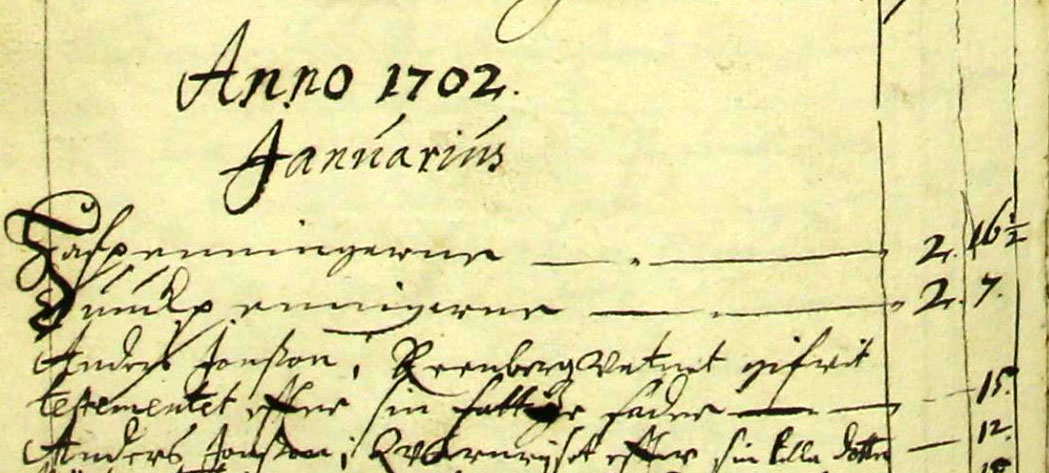 Anno 1702.
Januarius
Tafpenningerne — 2. 16½
penningerne — 2. 7.
Anders Jonsson i gifvit
testementet effter sin fattige fader — 15.
Anders Jonsson i effter sin lilla dotter — 12.